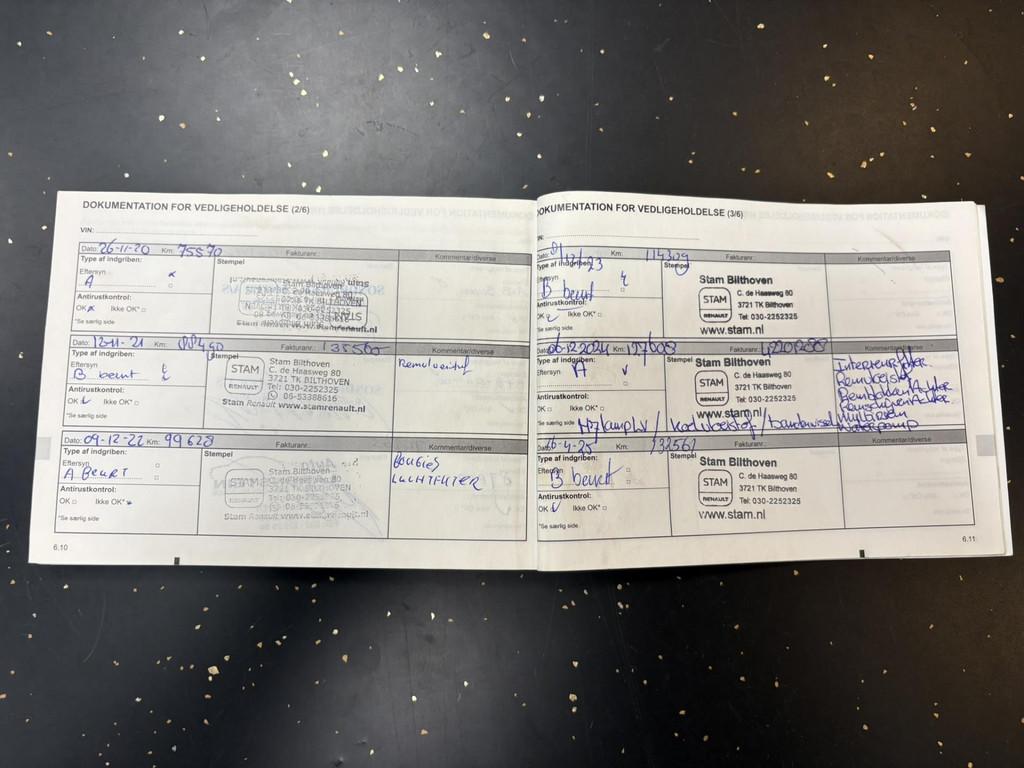 DOKUMENTATION FOR VEDLIGEHOLDELSE (2/6)
VIN:
Dato: 26-11-20 Km: 75870 Fakturanr.: Kommentar/diverse
Type af indgriben: Stempel
Eftersyn
A
Antirustkontrol:
OK Ikke OK*
*Se særlig side
Stam Bilthoven
Dato: 12-11-21 Km: 88450 Fakturanr.: 135560 Kommentar/diverse
Type af indgriben: Stempel
Eftersyn
B beurt
Antirustkontrol:
OK Ikke OK*
*Se særlig side
STAM
RENAULT
Stam Bilthoven
C. de Haasweg 80
3721 TK BILTHOVEN
Tel: 030-2252325
06-53388616
Stam Renault www.stamrenault.nl
Remvloeistof
Dato: 09-12-22 Km: 99628 Fakturanr.: Kommentar/diverse
Type af indgriben: Stempel
Eftersyn
A BEURT
Antirustkontrol:
OK Ikke OK*
*Se særlig side
Stam Bilthoven
C. de Haasweg 80
3721 TK BILTHOVEN
Tel: 030-2252325
Stam Renault www.stamrenault.nl
BOUGIES
LUCHTFILTER
6.10
DOKUMENTATION FOR VEDLIGEHOLDELSE (3/6)
VIN:
Dato: Km: 114309 Fakturanr.: Kommentar/diverse
Type af indgriben: Stempel
Eftersyn
B beurt
Antirustkontrol:
OK Ikke OK*
*Se særlig side
STAM
RENAULT
Stam Bilthoven
C. de Haasweg 80
3721 TK Bilthoven
Tel: 030-2252325
www.stam.nl
Dato: 06-12-2024 Km: 127608 Fakturanr.: Kommentar/diverse
Type af indgriben: Stempel
Eftersyn A
Antirustkontrol:
OK Ikke OK*
*Se særlig side
STAM
RENAULT
Stam Bilthoven
C. de Haasweg 80
3721 TK Bilthoven
Tel: 030-2252325
www.stam.nl
Interieurfilter
Remvloeistof
Remblokken Achter
Remschijven Achter
Multiriem
Waterpomp
/ Koelvloeistof / bandenwissel
Dato: Km: 132561 Fakturanr.: Kommentar/diverse
Type af indgriben: Stempel
Eftersyn
B beurt
Antirustkontrol:
OK Ikke OK*
*Se særlig side
STAM
RENAULT
Stam Bilthoven
C. de Haasweg 80
3721 TK Bilthoven
Tel: 030-2252325
www.stam.nl
6.11